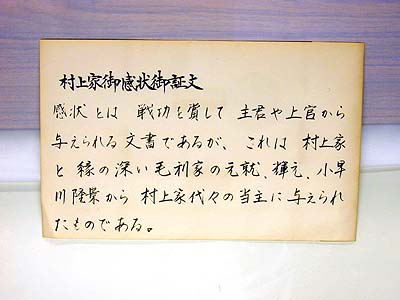 村上家御感状御証文
感状とは 戦功を賞して 主君や上官から
与えられる文書であるが、これは 村上家
と 縁の深い毛利家の元就、輝元、小早
川隆景から 村上家代々の当主に与えられ
たものである。